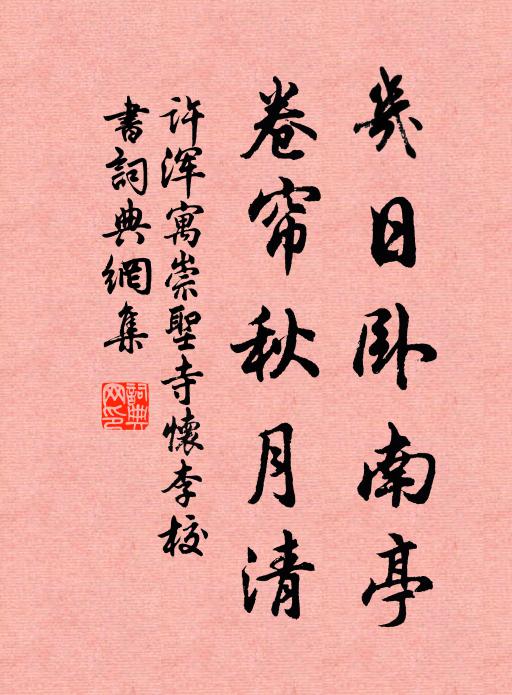 幾日卧南亭
卷帘秋月清
许浑寓崇聖寺懷李校
書詞典網集
詞典网印